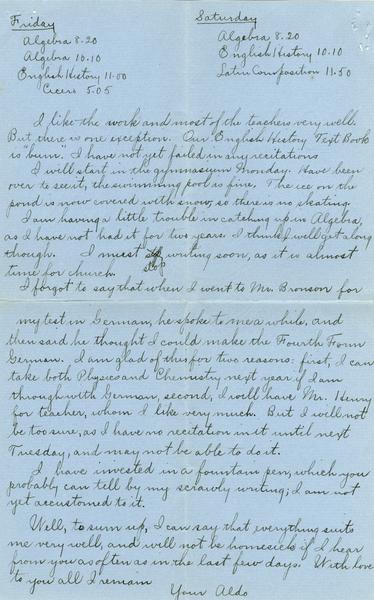 Friday
Algebra 8.20
Algebra 10.10
English History 11.00
Cicero 5.05
Saturday
Algebra 8.20
English History 10.10
Latin Composition 11.50
I like the work and most of the teachers very well.
But there is one exception. Our English History Text Book
is "bum". I have not yet failed in any recitations
I will start in the gymnasium Monday. Have been
over to see it, the swimming pool as fine. The ice on the
pond is now covered with snow, so there is no skating.
I am having a little trouble in catching up in Algebra,
as I have not had it for two years. I think I will get along
though. I must stop writing soon, as it is almost
time for church.
I forgot to say that when I went to Mr. Bronson for
my test in German, he spoke to me a while, and
then said he thought I could make the Fourth Form
German. I am glad of this for two reasons: first, I can
take both Physics and Chemistry next year if I am
through with German, second, I will have Mr. Henry
for teacher, whom I like very much. But I will not
be too sure, as I have no recitation in it until next
Tuesday, and may not be able to do it.
I have invested in a fountain pen, which you
probably can tell by my scrawly writing; I am not
yet accustomed to it.
Well, to sum up, I can say that everything suits
me very well, and will not be homesick if I hear
from you as often as in the last few days. With love
to you all I remain
Your Aldo